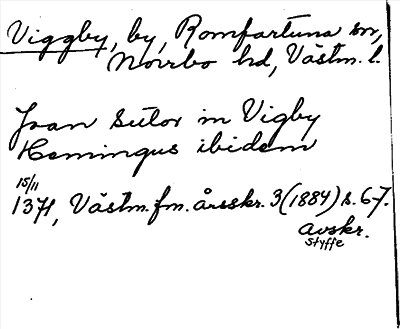 Viggby, by, Romfartuna sn,
Norrbo hd, Västm. l.
Joan Sutor in Vigby
Hemingus ibidem
15/11
1371, Västm. fm. årsskr. 3 (1884) s. 67.
Avskr.
Styffe